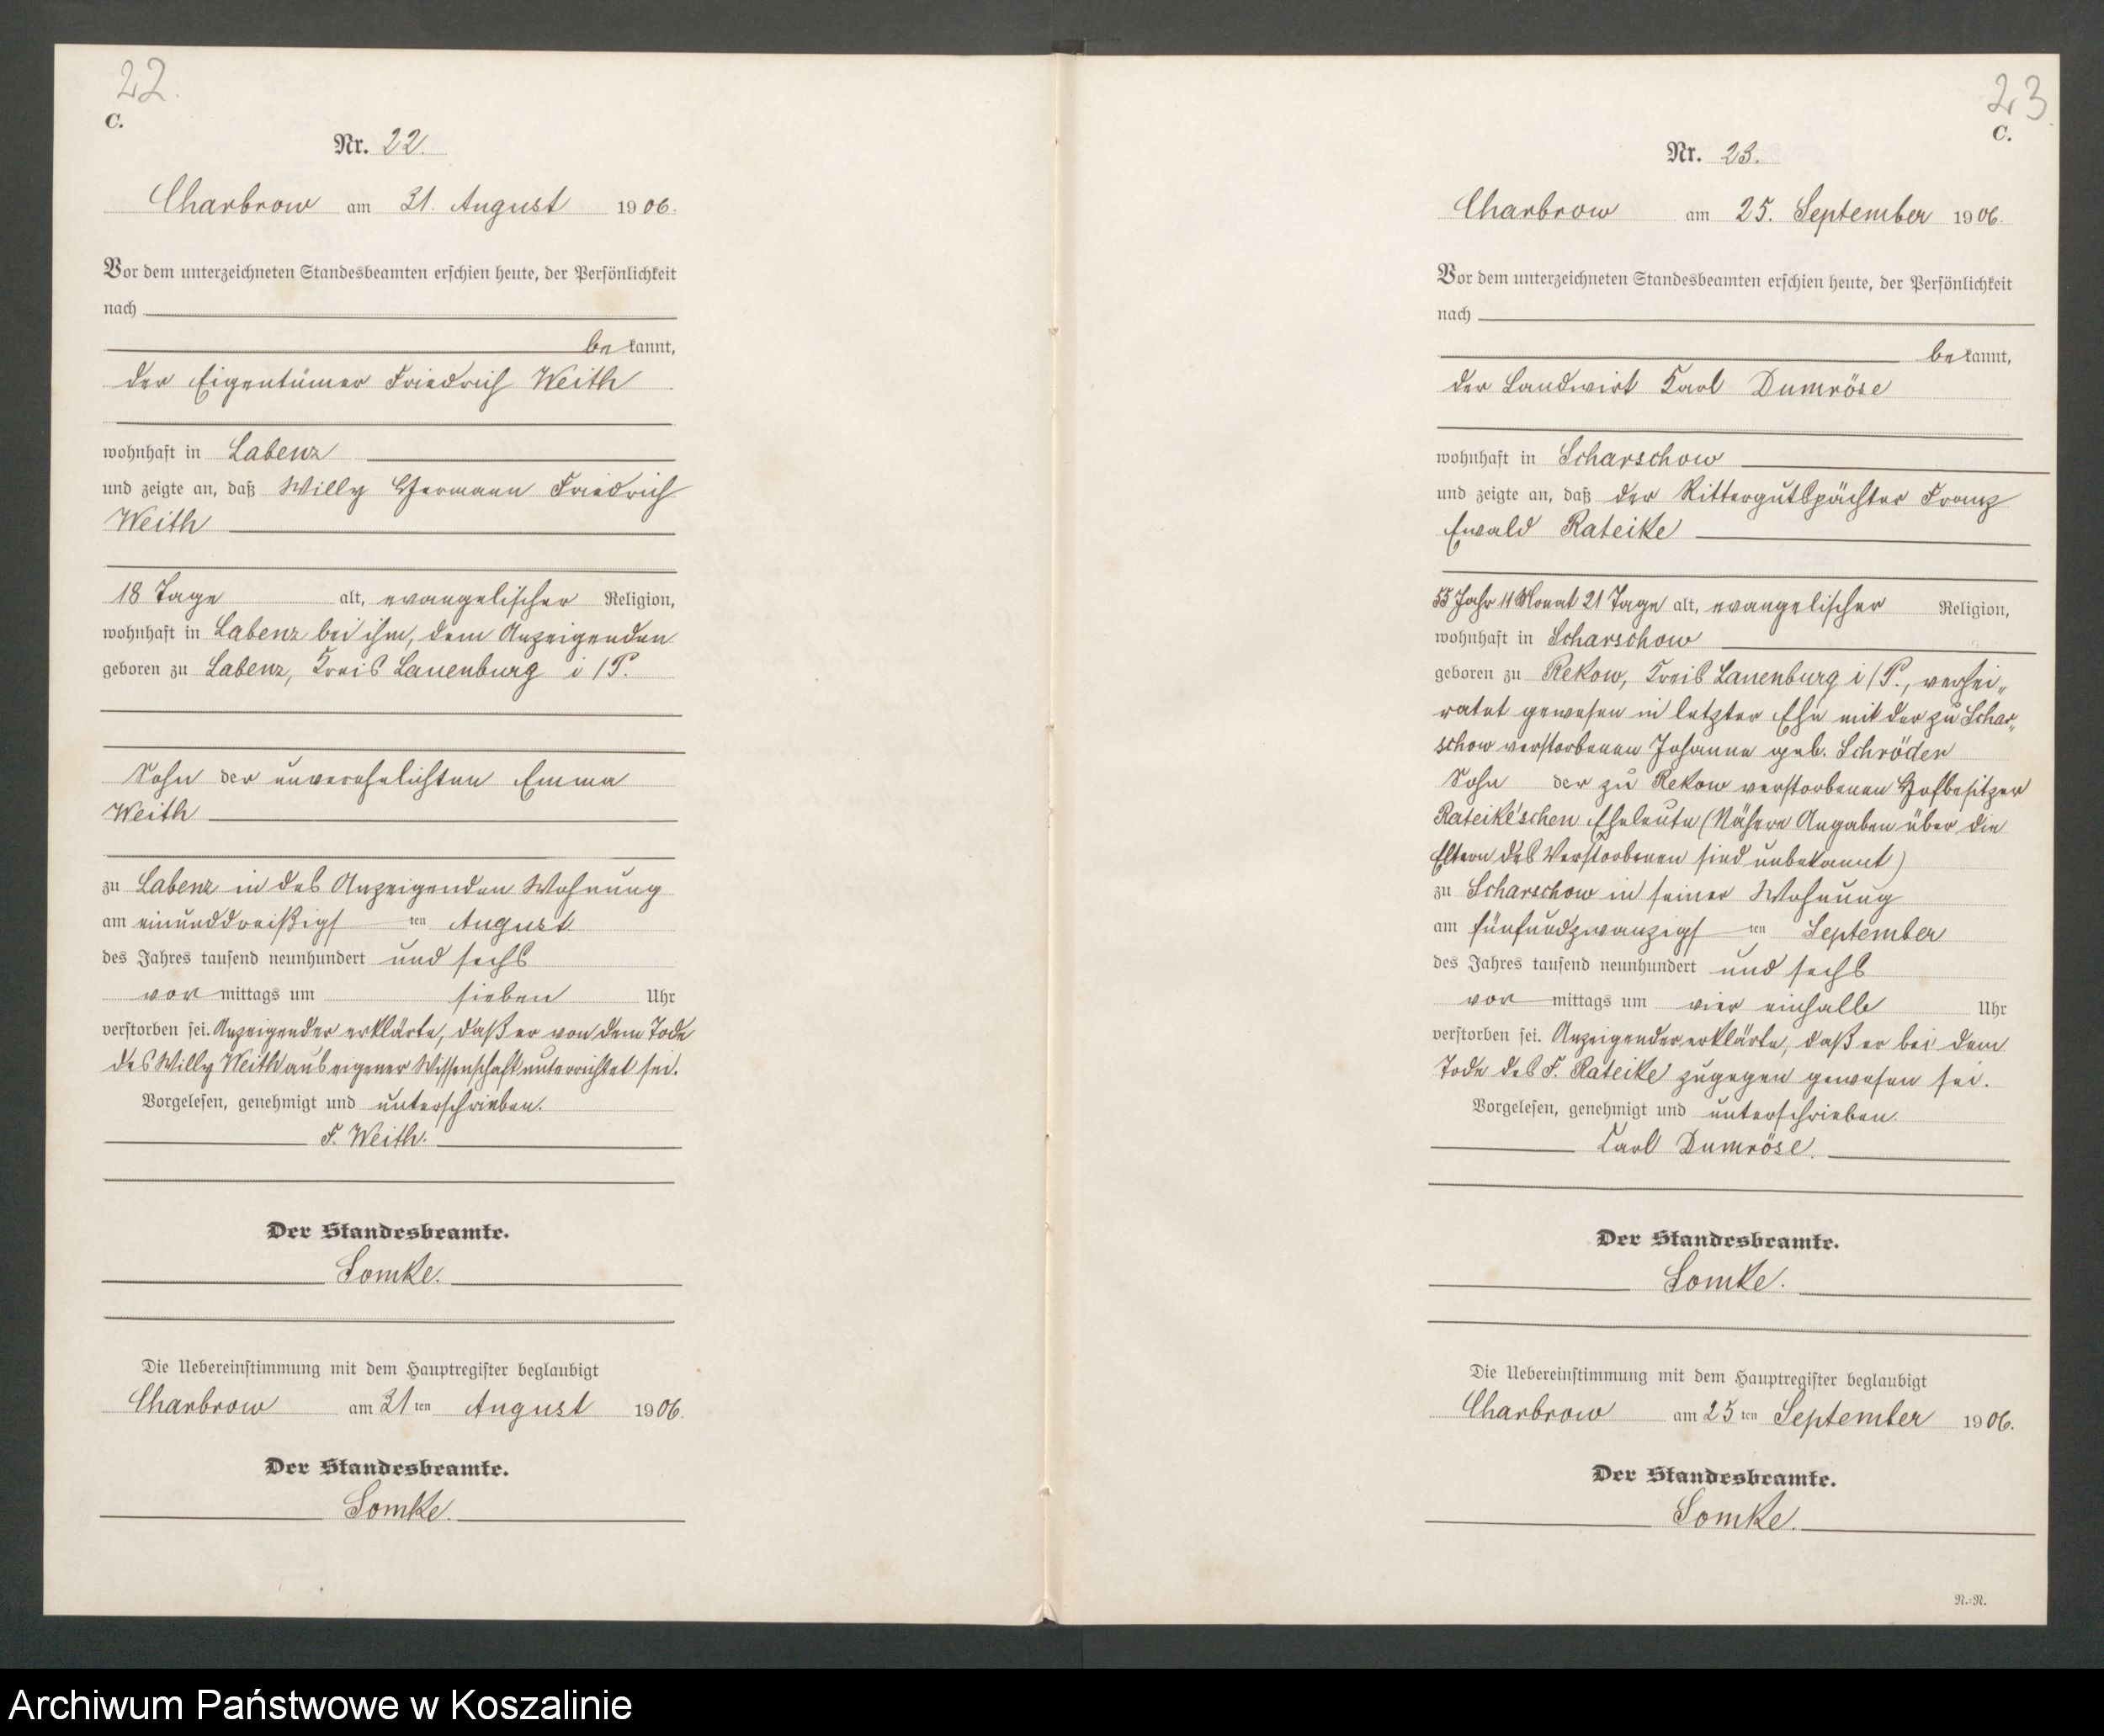 22.
C.
Nr. 22.
Charbrow am 31. August 1906.
Vor dem unterzeichneten Standesbeamten erschien heute, der Persönlichkeit
nach
bekannt,
der Eigentümer Friedrich Weith
wohnhaft in Labenz
und zeigte an, daß Willy Hermann Friedrich
Weith
18 Tage alt, evangelischer Religion,
wohnhaft in Labenz bei ihm, dem Anzeigenden
geboren zu Labenz, Kreis Lauenburg i/P.
Sohn der unverehelichten Emma
Weith
zu Labenz in des Anzeigenden Wohnung
am einunddreißigsten August
des Jahres tausend neunhundert und sechs
vormittags um sieben Uhr
verstorben sei. Anzeigender erklärte, daß er von dem Tode
des Willy Weith aus eigener Wissenschaft unterrichtet sei.
Vorgelesen, genehmigt und unterschrieben.
F. Weith.
Der Standesbeamte.
Lomke.
Die Uebereinstimmung mit dem Hauptregister beglaubigt
Charbrow am 31ten August 1906.
Der Standesbeamte.
Lomke.
23.
C.
Nr. 23.
Charbrow am 25. September 1906.
Vor dem unterzeichneten Standesbeamten erschien heute, der Persönlichkeit
nach
bekannt,
der Landwirt Karl Dumröse
wohnhaft in Scharschow
und zeigte an, daß der Rittergutspächter Franz
Ewald Rateike
55 Jahr 11 Monat 21 Tage alt, evangelischer Religion,
wohnhaft in Scharschow
geboren zu Rekow, Kreis Lauenburg i/P., verhei„
ratet gewesen in letzter Ehe mit der zu Schar„
schow verstorbenen Johanna geb. Schröder
Sohn der zu Rekow verstorbenen Hofbesitzer
Rateike'schen Eheleute (Nähere Angaben über die
Eltern des Verstorbenen sind unbekannt)
zu Scharschow in seiner Wohnung
am fünfundzwanzigsten September
des Jahres tausend neunhundert und sechs
vormittags um vier einhalb Uhr
verstorben sei. Anzeigender erklärte, daß er bei dem
Tode des F. Rateike zugegen gewesen sei.
Vorgelesen, genehmigt und unterschrieben.
Karl Dumröse.
Der Standesbeamte.
Lomke.
Die Uebereinstimmung mit dem Hauptregister beglaubigt
Charbrow am 25ten September 1906.
Der Standesbeamte.
Lomke.
N.-N.
Archiwum Państwowe w Koszalinie